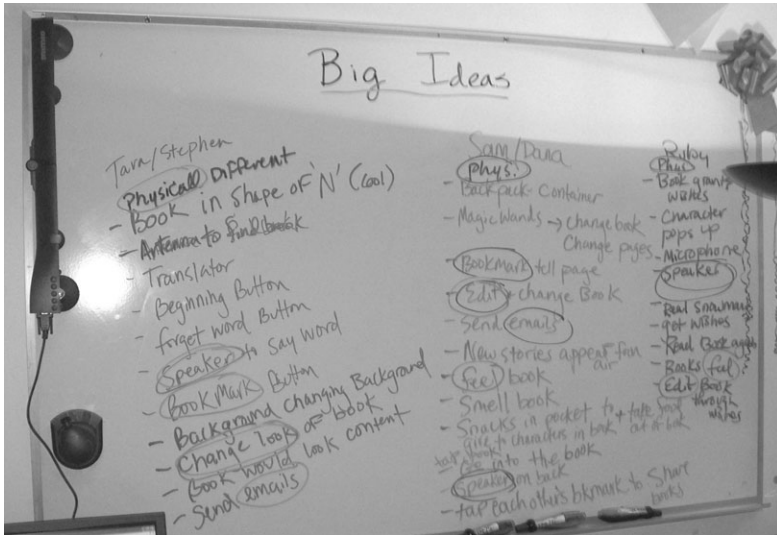 Big Ideas
Tara/Stephen
Physical Different
- Book in Shape of 'N' (Cool)
- Antenna to find book
- Translator
- Beginning Button
- forget word Button
- Speaker to say word
- Book Mark Button
- Background Changing Background
- Change look of book
- Book would look content
- Send emails
Sam/Dana
Phys.
- Backpack - Container
- Magic Wands → change book
Change pages
- Bookmark tell page
- Edit + change Book
- Send emails
- New stories appear from
air
- feel book
- Smell book
- Snacks in pocket to + take food
give to characters in book out of book
Go into the book
- Speaker on back
- tap each other's bkmark to Share
books
Ruby
Phys
- Book grants
wishes
- Character
pops up
- Microphone
- Speaker
- Read Snowman
- got wishes
- Read Book again
- Books feel
- Edit Book
through
wishes